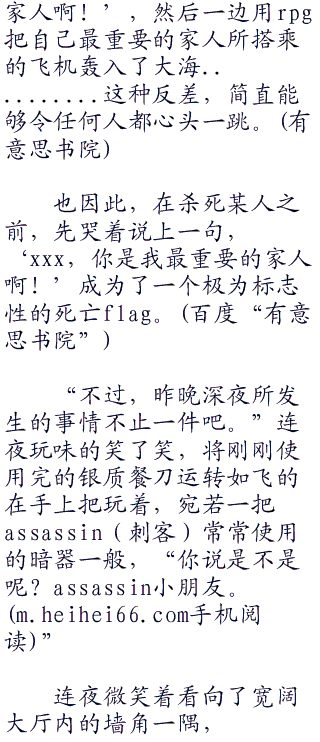 家人啊！’，然后一边用rpg
把自己最重要的家人所搭乘
的飞机轰入了大海..
........这种反差，简直能
够令任何人都心头一跳。(有
意思书院)
也因此，在杀死某人之
前，先哭着说上一句，
‘xxx，你是我最重要的家人
啊！’成为了一个极为标志
性的死亡flag。(百度“有意
思书院”)
“不过，昨晚深夜所发
生的事情不止一件吧。”连
夜玩味的笑了笑，将刚刚使
用完的银质餐刀运转如飞的
在手上把玩着，宛若一把
assassin（刺客）常常使用
的暗器一般，“你说是不是
呢？assassin小朋友。
(m.heihei66.com手机阅
读)”
连夜微笑着看向了宽阔
大厅内的墙角一隅，